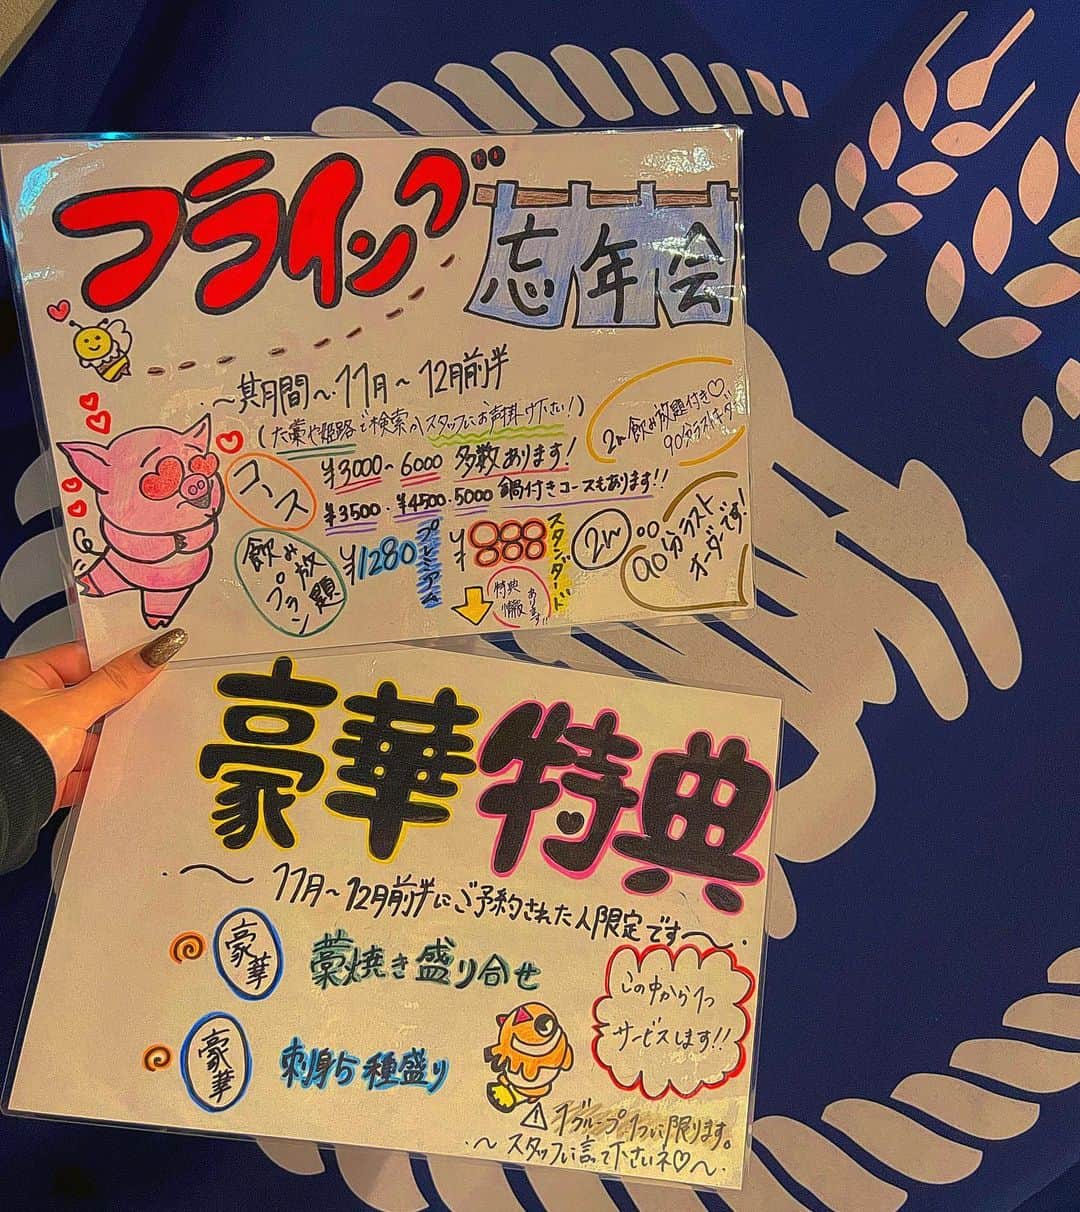 フライング
忘年会
〜期間〜11月〜12月前半
(大藁や姫路で検索かスタッフにお声掛け下さい!)
2h飲み放題付き♡
90分ラストオーダー
コース
¥3000〜6000 多数あります!
¥3500・¥4500・5000 鍋付きコースもあります!!
飲み放題プラン
¥1280 プレミアム
¥888 スタンダード
2h
90分ラスト
オーダーです!
特典情報あります!!
豪華特典
〜11月〜12月前半にご予約された人限定です〜
豪華 藁焼き盛り合せ
豪華 刺身5種盛り
この中から1つ
サービスします!!
⚠1グループ1つに限ります。
〜スタッフに言って下さいネ♡〜